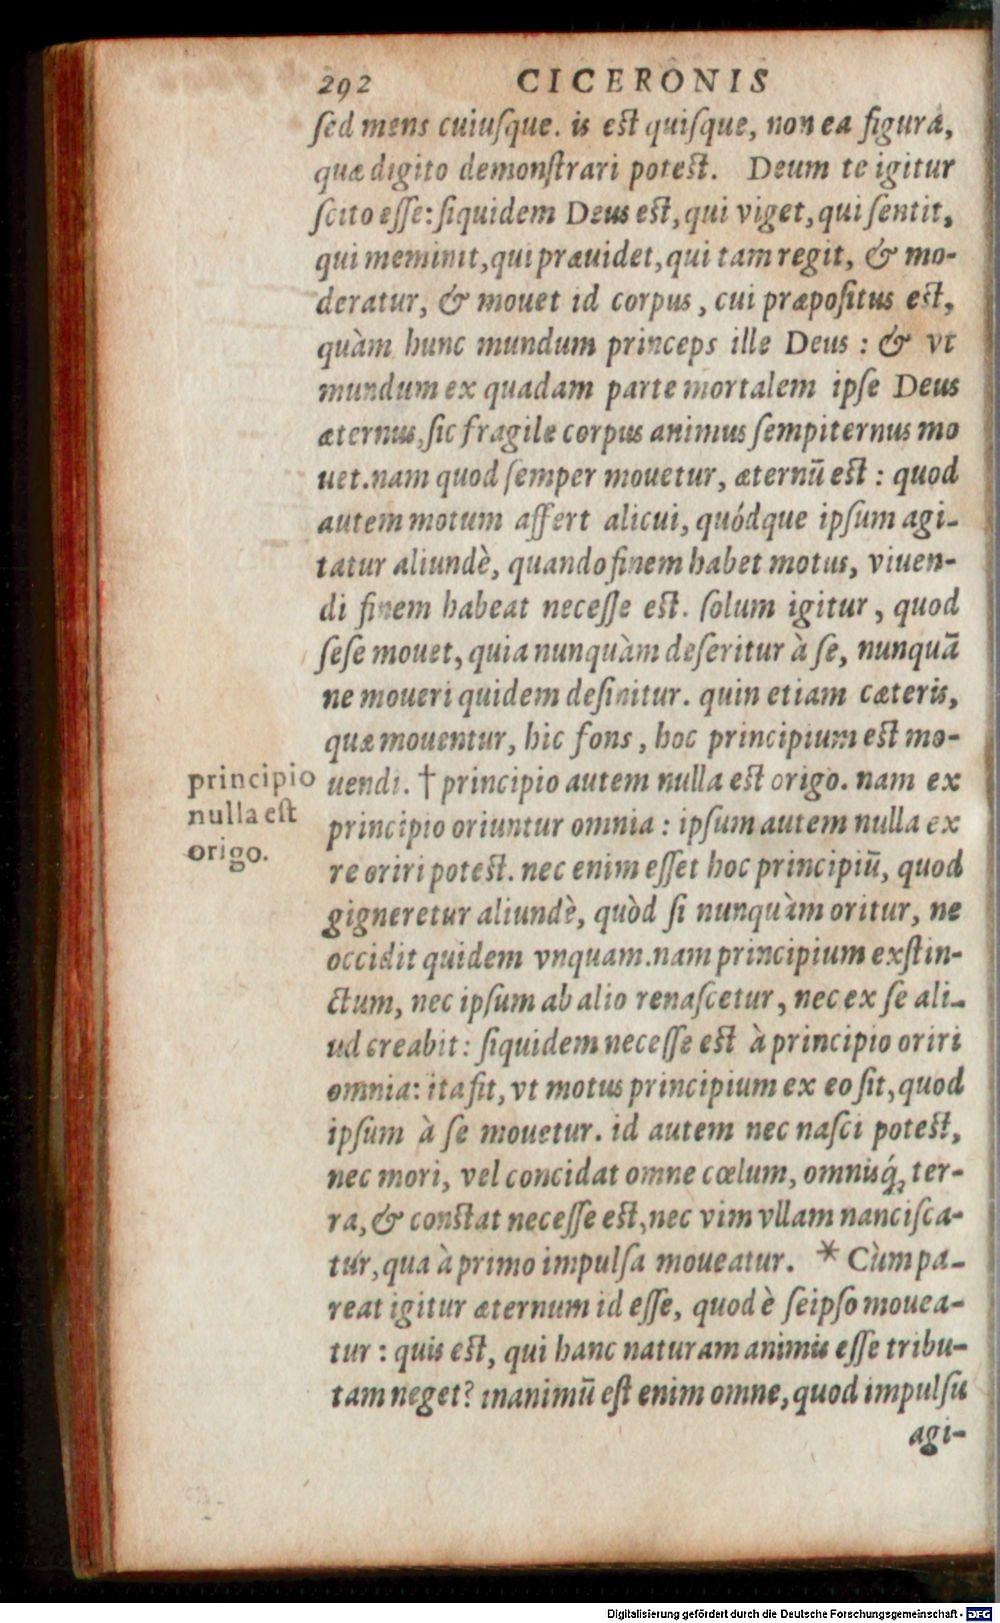 292 CICERONIS
ſed mens cuiuſque. is eſt quiſque, non ea figura,
quæ digito demonſtrari poteſt. Deum te igitur
ſcito eſſe: ſiquidem Deus eſt, qui viget, qui ſentit,
qui meminit, qui præuidet, qui tam regit, & mo-
deratur, & mouet id corpus, cui præpoſitus eſt,
quàm hunc mundum princeps ille Deus: & vt
mundum ex quadam parte mortalem ipſe Deus
æternus, ſic fragile corpus animus ſempiternus mo
uet. nam quod ſemper mouetur, æternū eſt: quod
autem motum affert alicui, quódque ipſum agi-
tatur aliundè, quando finem habet motus, viuen-
di finem habeat neceſſe eſt. ſolum igitur, quod
ſeſe mouet, quia nunquàm deſeritur à ſe, nunquā
ne moueri quidem deſinitur. quin etiam cæteris,
quæ mouentur, hic fons, hoc principium eſt mo-
uendi. † principio autem nulla eſt origo. nam ex
principio oriuntur omnia: ipſum autem nulla ex
re oriri poteſt. nec enim eſſet hoc principiū, quod
gigneretur aliundè, quòd ſi nunquàm oritur, ne
occidit quidem vnquam. nam principium exſtin-
ctum, nec ipſum ab alio renaſcetur, nec ex ſe ali-
ud creabit: ſiquidem neceſſe eſt à principio oriri
omnia: ita fit, vt motus principium ex eo ſit, quod
ipſum à ſe mouetur. id autem nec naſci poteſt,
nec mori, vel concidat omne cœlum, omnisq́; ter-
ra, & conſtat neceſſe eſt, nec vim vllam nanciſca-
tur, qua à primo impulſa moueatur. * Cùm pa-
reat igitur æternum id eſſe, quod è ſeipſo mouea-
tur: quis eſt, qui hanc naturam animis eſſe tribu-
tam neget? inanimū eſt enim omne, quod impulſu
agi-
principio
nulla eſt
origo.
Digitalisierung gefördert durch die Deutsche Forschungsgemeinschaft - DFG